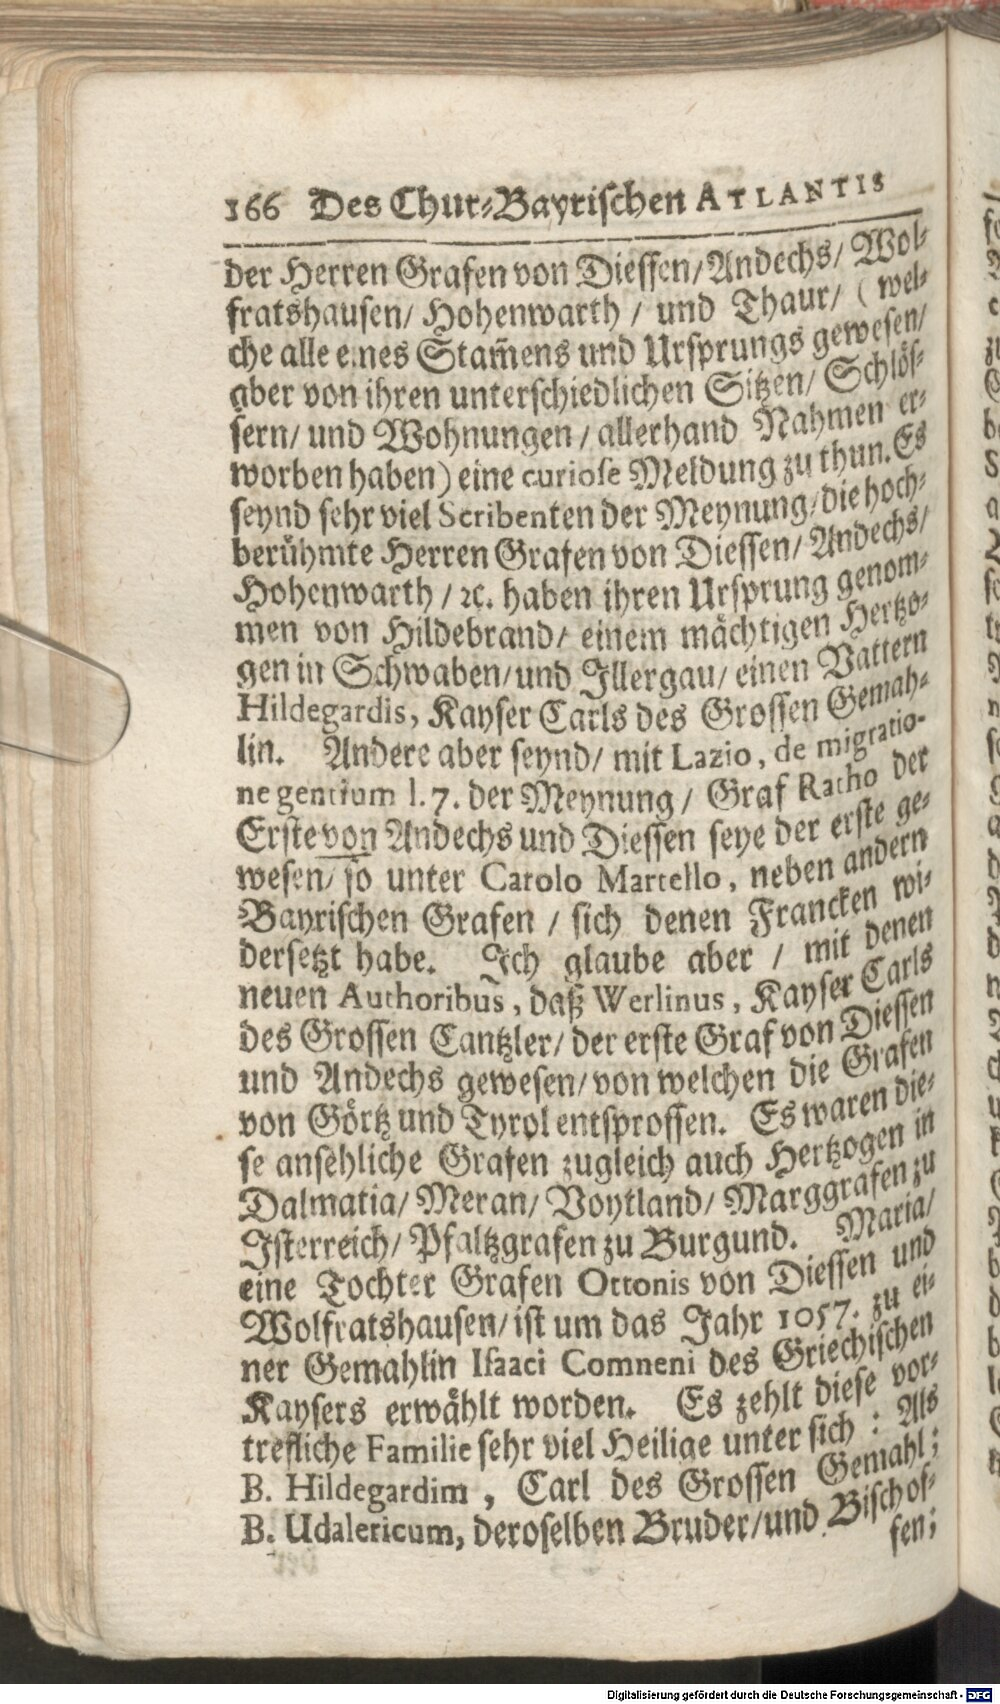 166 Des Chur-Bayrischen ATLANTIS
der Herren Grafen von Diessen/ Andechs/ Wol-
fratshausen/ Hohenwarth / und Thaur/ ( wel-
che alle eines Stam̃ens und Ursprungs gewesen/
aber von ihren unterschiedlichen Sitzen/ Schlös-
sern/ und Wohnungen / allerhand Nahmen er-
worben haben) eine curiose Meldung zu thun. Es
seynd sehr viel Scribenten der Meynung/ die hoch-
berühmte Herren Grafen von Diessen/ Andechs/
Hohenwarth / ꝛc. haben ihren Ursprung genom-
men von Hildebrand/ einem mächtigen Hertzo-
gen in Schwaben/ und Illergau/ einen Vattern
Hildegardis, Kayser Carls des Grossen Gemah-
lin. Andere aber seynd/ mit Lazio, de migratio-
ne gentium l. 7. der Meynung / Graf Ratho der
Erste von Andechs und Diessen seye der erste ge-
wesen/ so unter Carolo Martello, neben andern
Bayrischen Grafen / sich denen Francken wi-
dersetzt habe. Ich glaube aber / mit denen
neuen Authoribus, daß Werlinus, Kayser Carls
des Grossen Cantzler/ der erste Graf von Diessen
und Andechs gewesen/ von welchen die Grafen
von Görtz und Tyrol entsprossen. Es waren die-
se ansehliche Grafen zugleich auch Hertzogen in
Dalmatia/ Meran/ Voytland/ Marggrafen zu
Isterreich/ Pfaltzgrafen zu Burgund. Maria/
eine Tochter Grafen Ottonis von Diessen und
Wolfratshausen/ ist um das Jahr 1057. zu ei-
ner Gemahlin Isaaci Comneni des Griechischen
Kaysers erwählt worden. Es zehlt diese vor-
trefliche Familie sehr viel Heilige unter sich : Als
B. Hildegardim , Carl des Grossen Gemahl;
B. Udalericum, deroselben Bruder/ und Bischof-
fen;
Digitalisierung gefördert durch die Deutsche Forschungsgemeinschaft - DFG